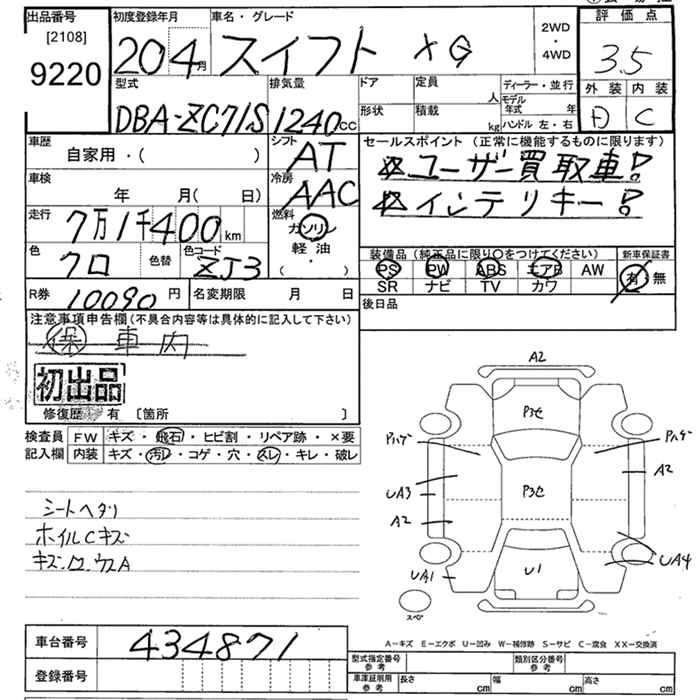 出品番号
[2108]
9220
初度登録年月
20 4月
車名・グレード
スイフト XG
2WD
・
4WD
評価点
3.5
外装 内装
D C
型式
DBA-ZC71S
排気量
1240CC
ドア
形状
定員
人
積載
kg
ディーラー・並行
モデル年式 年
ハンドル 左・右
車歴
自家用・( )
シフト
AT
車検
年 月( 日)
冷房
AAC
走行
7万1千400km
燃料
ガソリン
軽油
( ・ )
色
クロ
色替
色コード
ZJ3
セールスポイント(正常に機能するものに限ります)
※ユーザー買取車!
※インテリキー!
装備品(純正品に限り○をつけてください)
PS PW ABS エアB AW
SR ナビ TV カワ
新車保証書
有・無
R券 10090円
名変期限 月 日
後日品
注意事項申告欄(不具合内容等は具体的に記入して下さい)
保 車内
初出品
修復歴 有 〔箇所 〕
検査員記入欄
FW キズ・飛石・ヒビ割・リペア跡・×要
内装 キズ・汚レ・コゲ・穴・スレ・キレ・破レ
シートヘタリ
ホイルCキズ
A2
Pハゲ
Pハゲ
A2
UA3
A2
UA4
UA1
U1
スペア
車台番号 434871
登録番号
A-キズ E-エクボ U-凹み W-補修跡 S-サビ C-腐食 XX-交換済
型式指定番号 参考
類別区分番号 参考
車庫証明用 参考
長さ cm
幅 cm
高さ cm